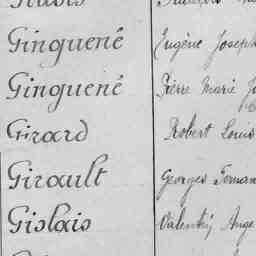 Ginguené Eugène Joseph
Ginguené Pierre Marie
Girard Robert Louis
Girault Georges
Gislais Ange